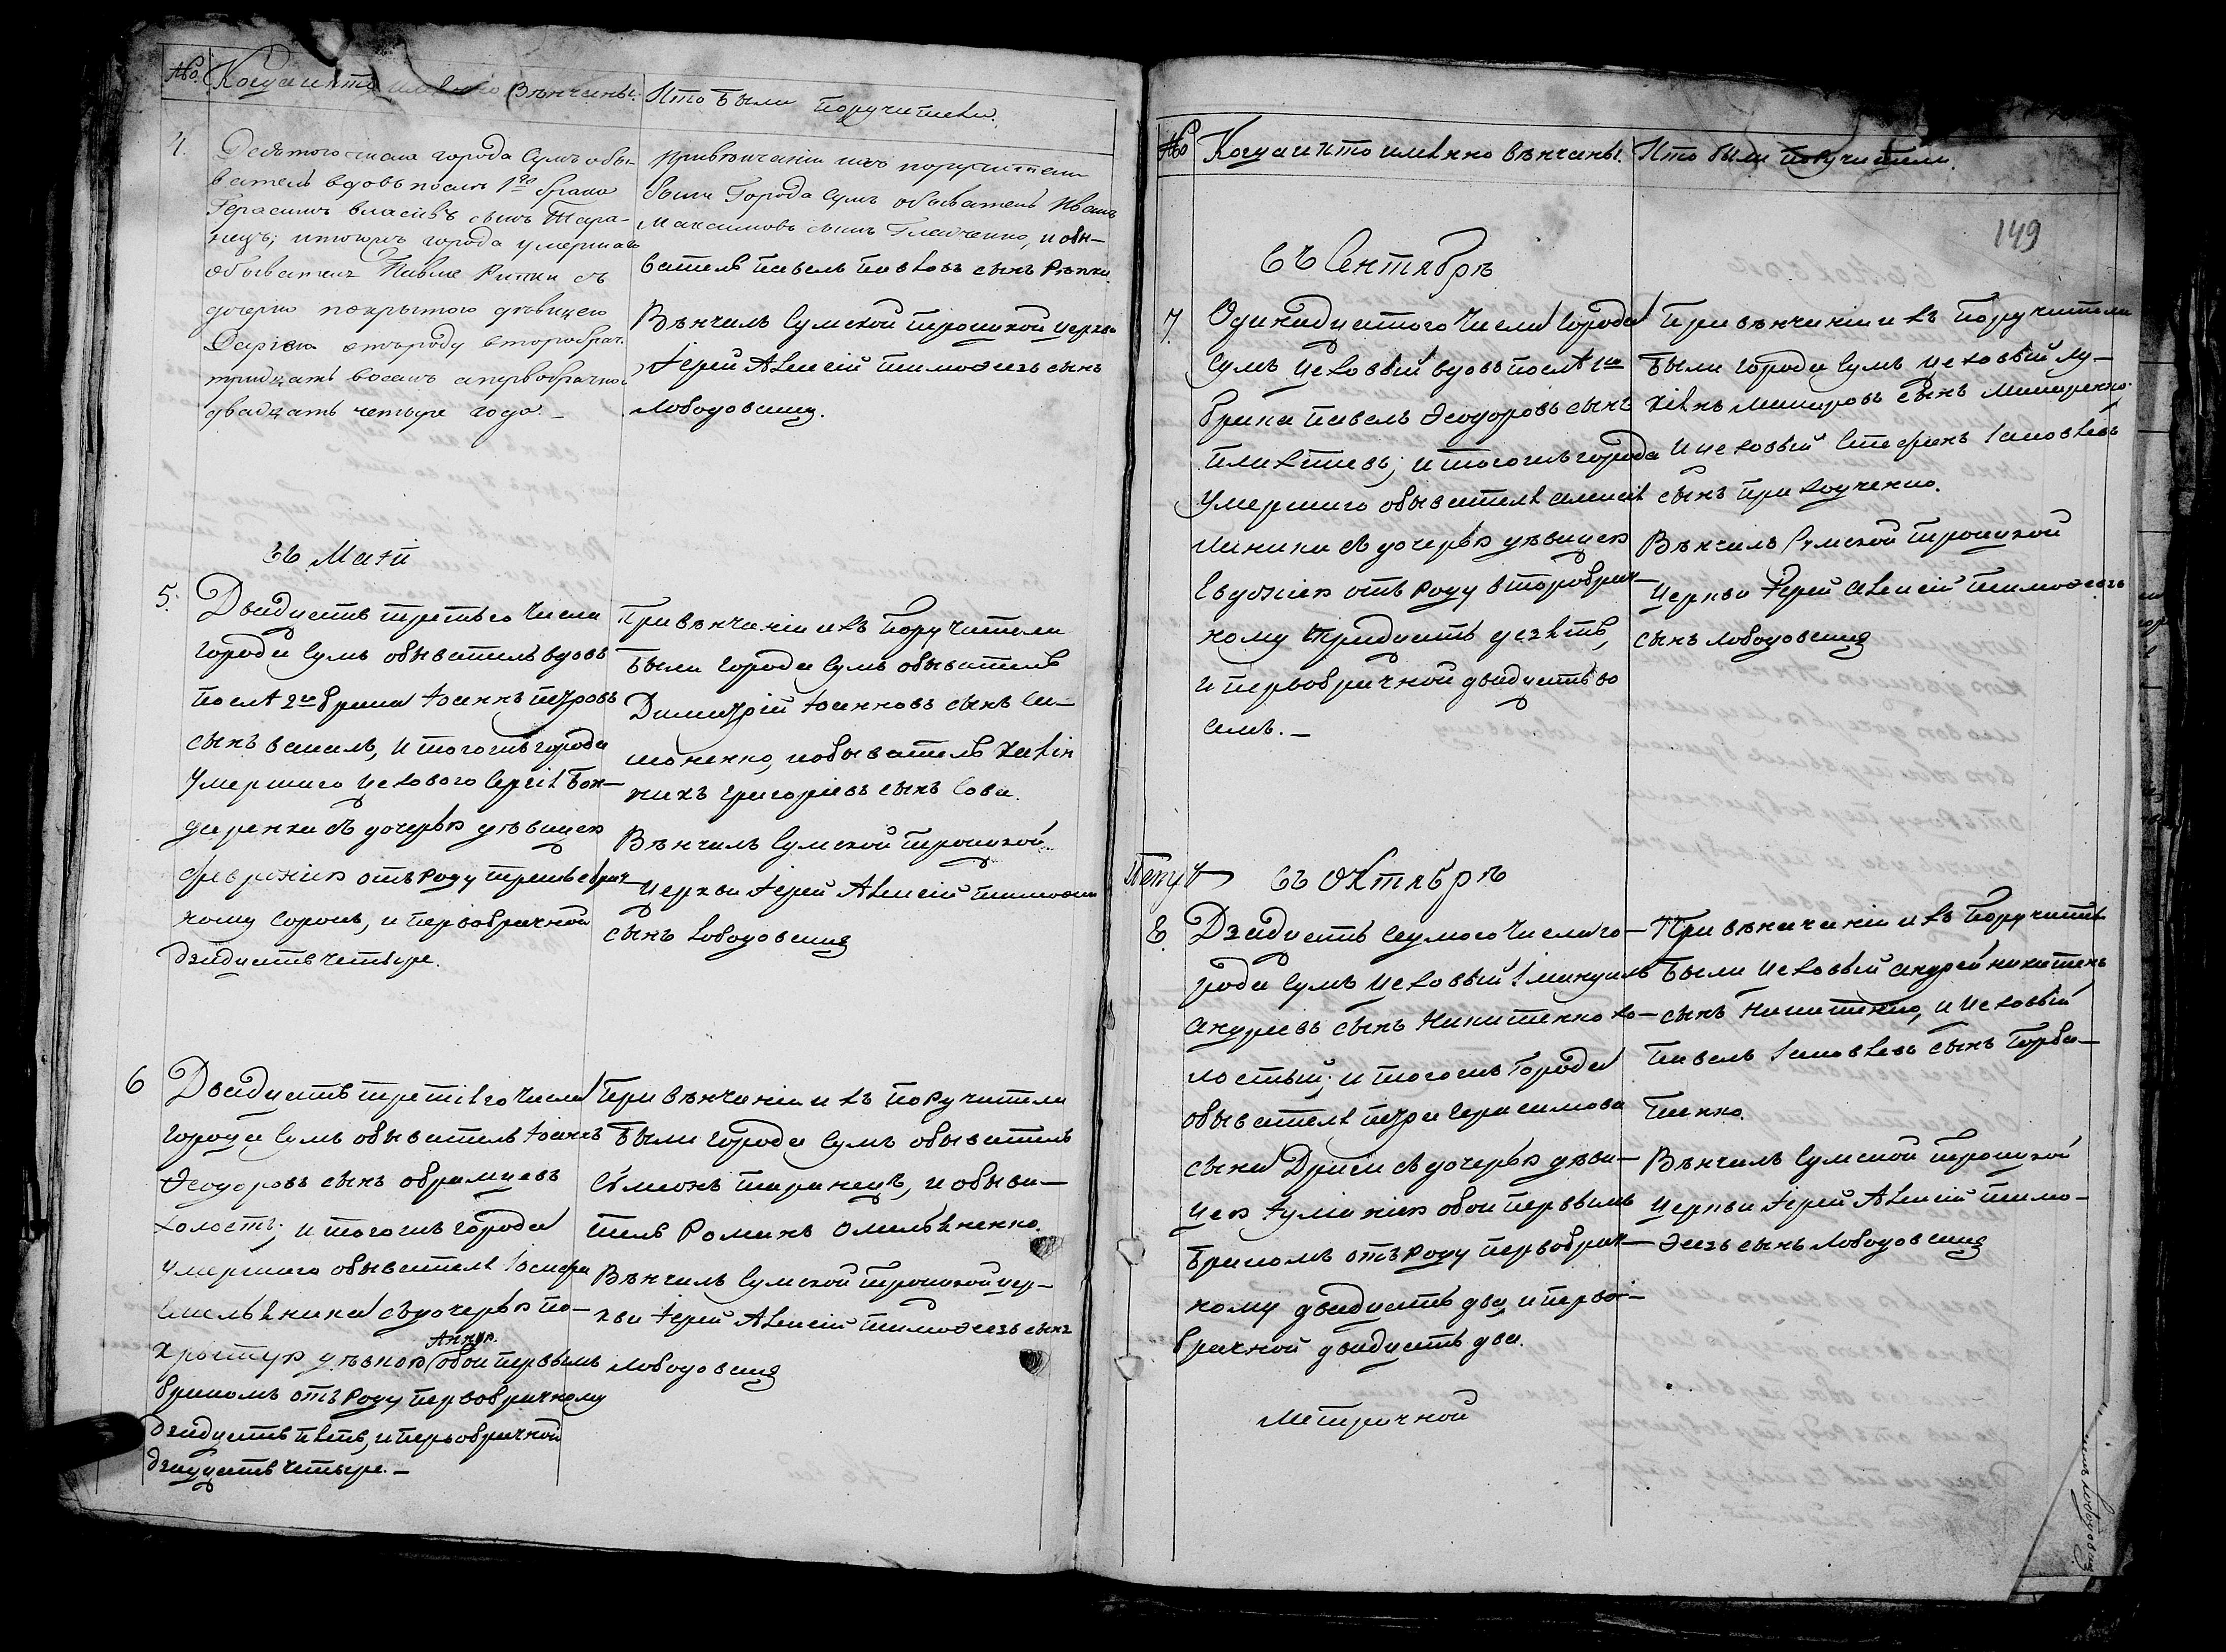 No. Когда и кто именно Вѣнчаны.
Кто были поручители.
4.
Девятого числа города Сумъ обы-
ватель вдовъ послѣ 1го брака
Герасимъ власіевъ сынъ Тара-
нецъ; итогожъ города умершаго
обывателя Павла Рипки съ
дочерью покрытою дѣвицею
Дарією отъроду второбрач.
тридцать восемъ апервобрачной
двадцать четыре года. –
Привѣнчаніи ихъ поручители
были Города Сумъ обыватель Иванъ
Максимовъ сынъ Глатченко, и обы-
ватель павелъ павловъ сынъ Рѣпка.
Вѣнчалъ Сумской троицкой церкви
Іерей Алексій тимофеевъ сынъ
лободовский.
въ Маїй
5.
Двадцать третьего числа
города Сумъ обыватель вдовъ
послѣ 2го брака Іоаннъ петровъ
сынъ, и тогожъ города
умершаго цехового Сергія Бон-
даренка съ дочерью дѣвицею
отъ роду третьебрач-
ному сорокъ, и первобрачной
двадцать четыре.
Привѣнчаніи ихъ поручители
были города Сумъ обыватель
Димитрій Іоанновъ сынъ Си-
моненко, и обыватель
григоріевъ сынъ Сова.
Вѣнчалъ Сумской троицкой
церкви Іерей Алексій тимофеевъ
сынъ лободовский
6
Двадцать третіего числа
города Сумъ обыватель Іоаннъ
Феодоровъ сынъ абрамцевъ
холостъ; и тогожъ города
умершаго обывателя Іосифа
Емельяника съ дочерью по-
крытую дѣвкою Анною. обои первымъ
бракомъ отъ роду первобрачному
двадцать пять, и первобрачной
двадцать четыре. –
При вѣнчаніи ихъ поручители
были города Сумъ обыватель
Сѵмеонъ таранецъ, и обыва-
тель Романъ Омельяненко.
Вѣнчалъ Сумской троицкой цер-
кви Іерей Алексій тимофеевъ сынъ
лободовский
No Когда и кто именно вѣнчаны.
Кто были поручители.
149
въ Сентябрѣ
7.
Одинадцатого числа города
Сумъ цеховый вдовъ послѣ 1го
брака павелъ Феодоровъ сынъ
; и тогожъ города
умершаго обывателя алексія
съ дочерью дѣвицею
Евдокіею отъ роду второбрач-
ному тридцать девять,
и первобрачной двадцать во
семъ. –
При вѣнчаніи ихъ поручители
были города Сумъ цеховый лу-
кіянъ макаровъ сынъ макаренко
и цеховый Стефанъ Іаковлевъ
сынъ приходченко.
Вѣнчалъ Сумской троицкой
церкви Іерей Алексій тимофеевъ
сынъ лободовский
въ Октябрѣ
8.
Двадцать седмого числа го-
рода Сумъ цеховый Іммануилъ
андреевъ сынъ Никитенко хо-
лостый; и тогожъ города
обывателя петра герасимова
сына съ дочерью дѣви-
цею Іуліаніею обои первымъ
бракомъ отъ роду первобрач-
ному двадцать два, и перво-
брачной двадцать два.
При вѣнчаніи ихъ поручите
были цеховый андрей никитенъ
сынъ Никитенко, и цеховый
павелъ Іаковлевъ сынъ Горба-
тенко.
Вѣнчалъ Сумской троицкой
церкви Іерей Алексій тимо-
феевъ сынъ лободовский
метричной